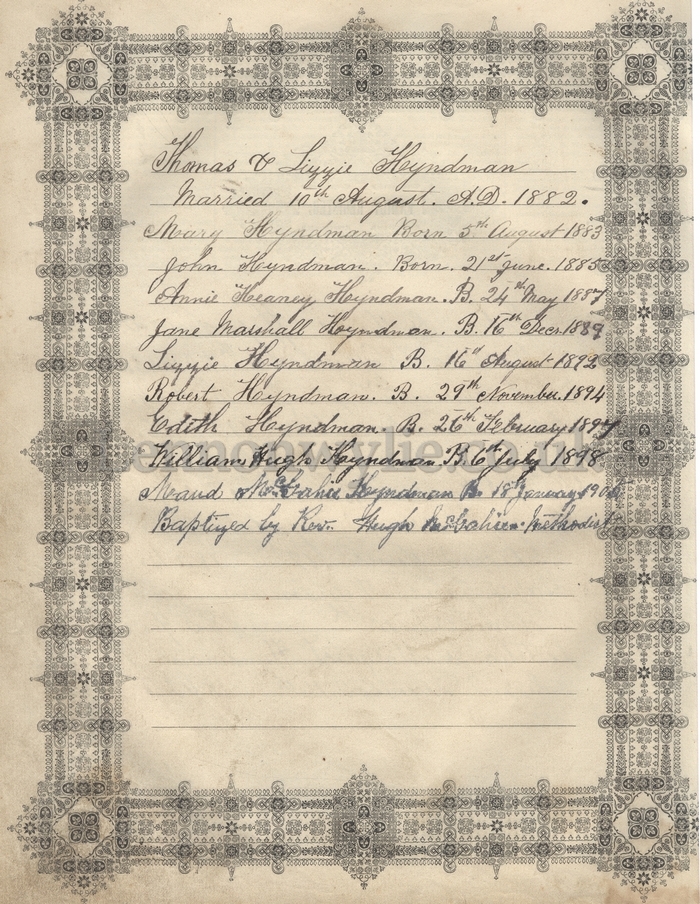 Thomas & Lizzie Hyndman
Married 10th August. A.D. 1882.
Mary Hyndman Born 5th August 1883
John Hyndman. Born. 21st June. 1885
Annie Heaney Hyndman. B. 24th May 1887
Jane Marshall Hyndman. B. 16th Decr. 1889
Lizzie Hyndman B. 16th August 1892
Robert Hyndman. B. 29th November. 1894
Edith Hyndman. B. 26th February 1897
William Hugh Hyndman B. 6th July 1898
Maud McGahie Hyndman B. 18th January
Baptized by Rev. Hugh McGahie. Methodist